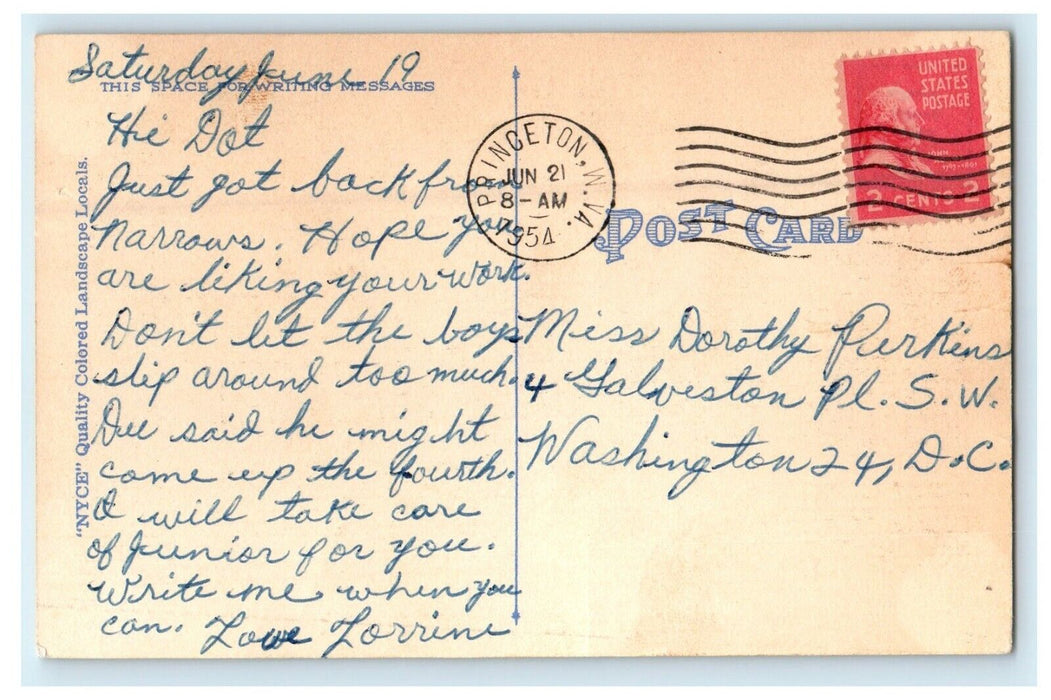 Saturday June 19
THIS SPACE FOR WRITING MESSAGES
Hi Dot
Just got back from
Narrows. Hope you
are liking your work.
Don't let the boys
slip around too much.
Dee said he might
come up the fourth.
I will take care
of Junior for you.
Write me when you
can. Love Lorrine
"NYCE" Quality Colored Landscape Locals.
PRINCETON, W.VA.
JUN 21
8-AM
1954
UNITED
STATES
POSTAGE
JOHN
2 CENTS 2
POST CARD
Miss Dorothy Perkins
4 Galveston Pl. S.W.
Washington 24, D.C.